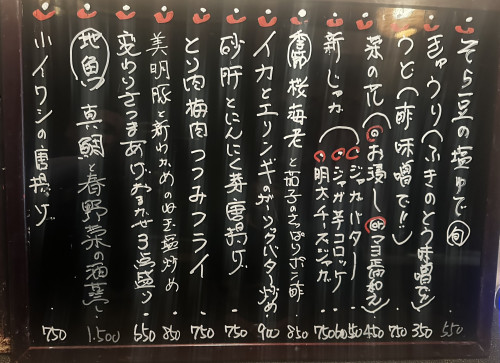 そら豆の塩ゆで 旬 550
きゅうり(ふきのとう味噌で) 350
うど(酢味噌で!!) 750
菜の花 お浸し マヨ醤和え 450
新じゃが
ジャガバター 550
ジャガ芋コロッケ 600
明太チーズジャガ 750
桜海老と茄子のさっぱりポン酢 850
イカとエリンギのガーリックバター炒め 900
砂肝とにんにく芽唐揚げ 750
とり肉梅肉つつみフライ 750
美明豚と新わかめの塩炒め 850
変わりさつまあげおまかせ3点盛り 650
地魚 真鯛と春野菜の酒蒸し 1.500
小イワシの唐揚げ 750